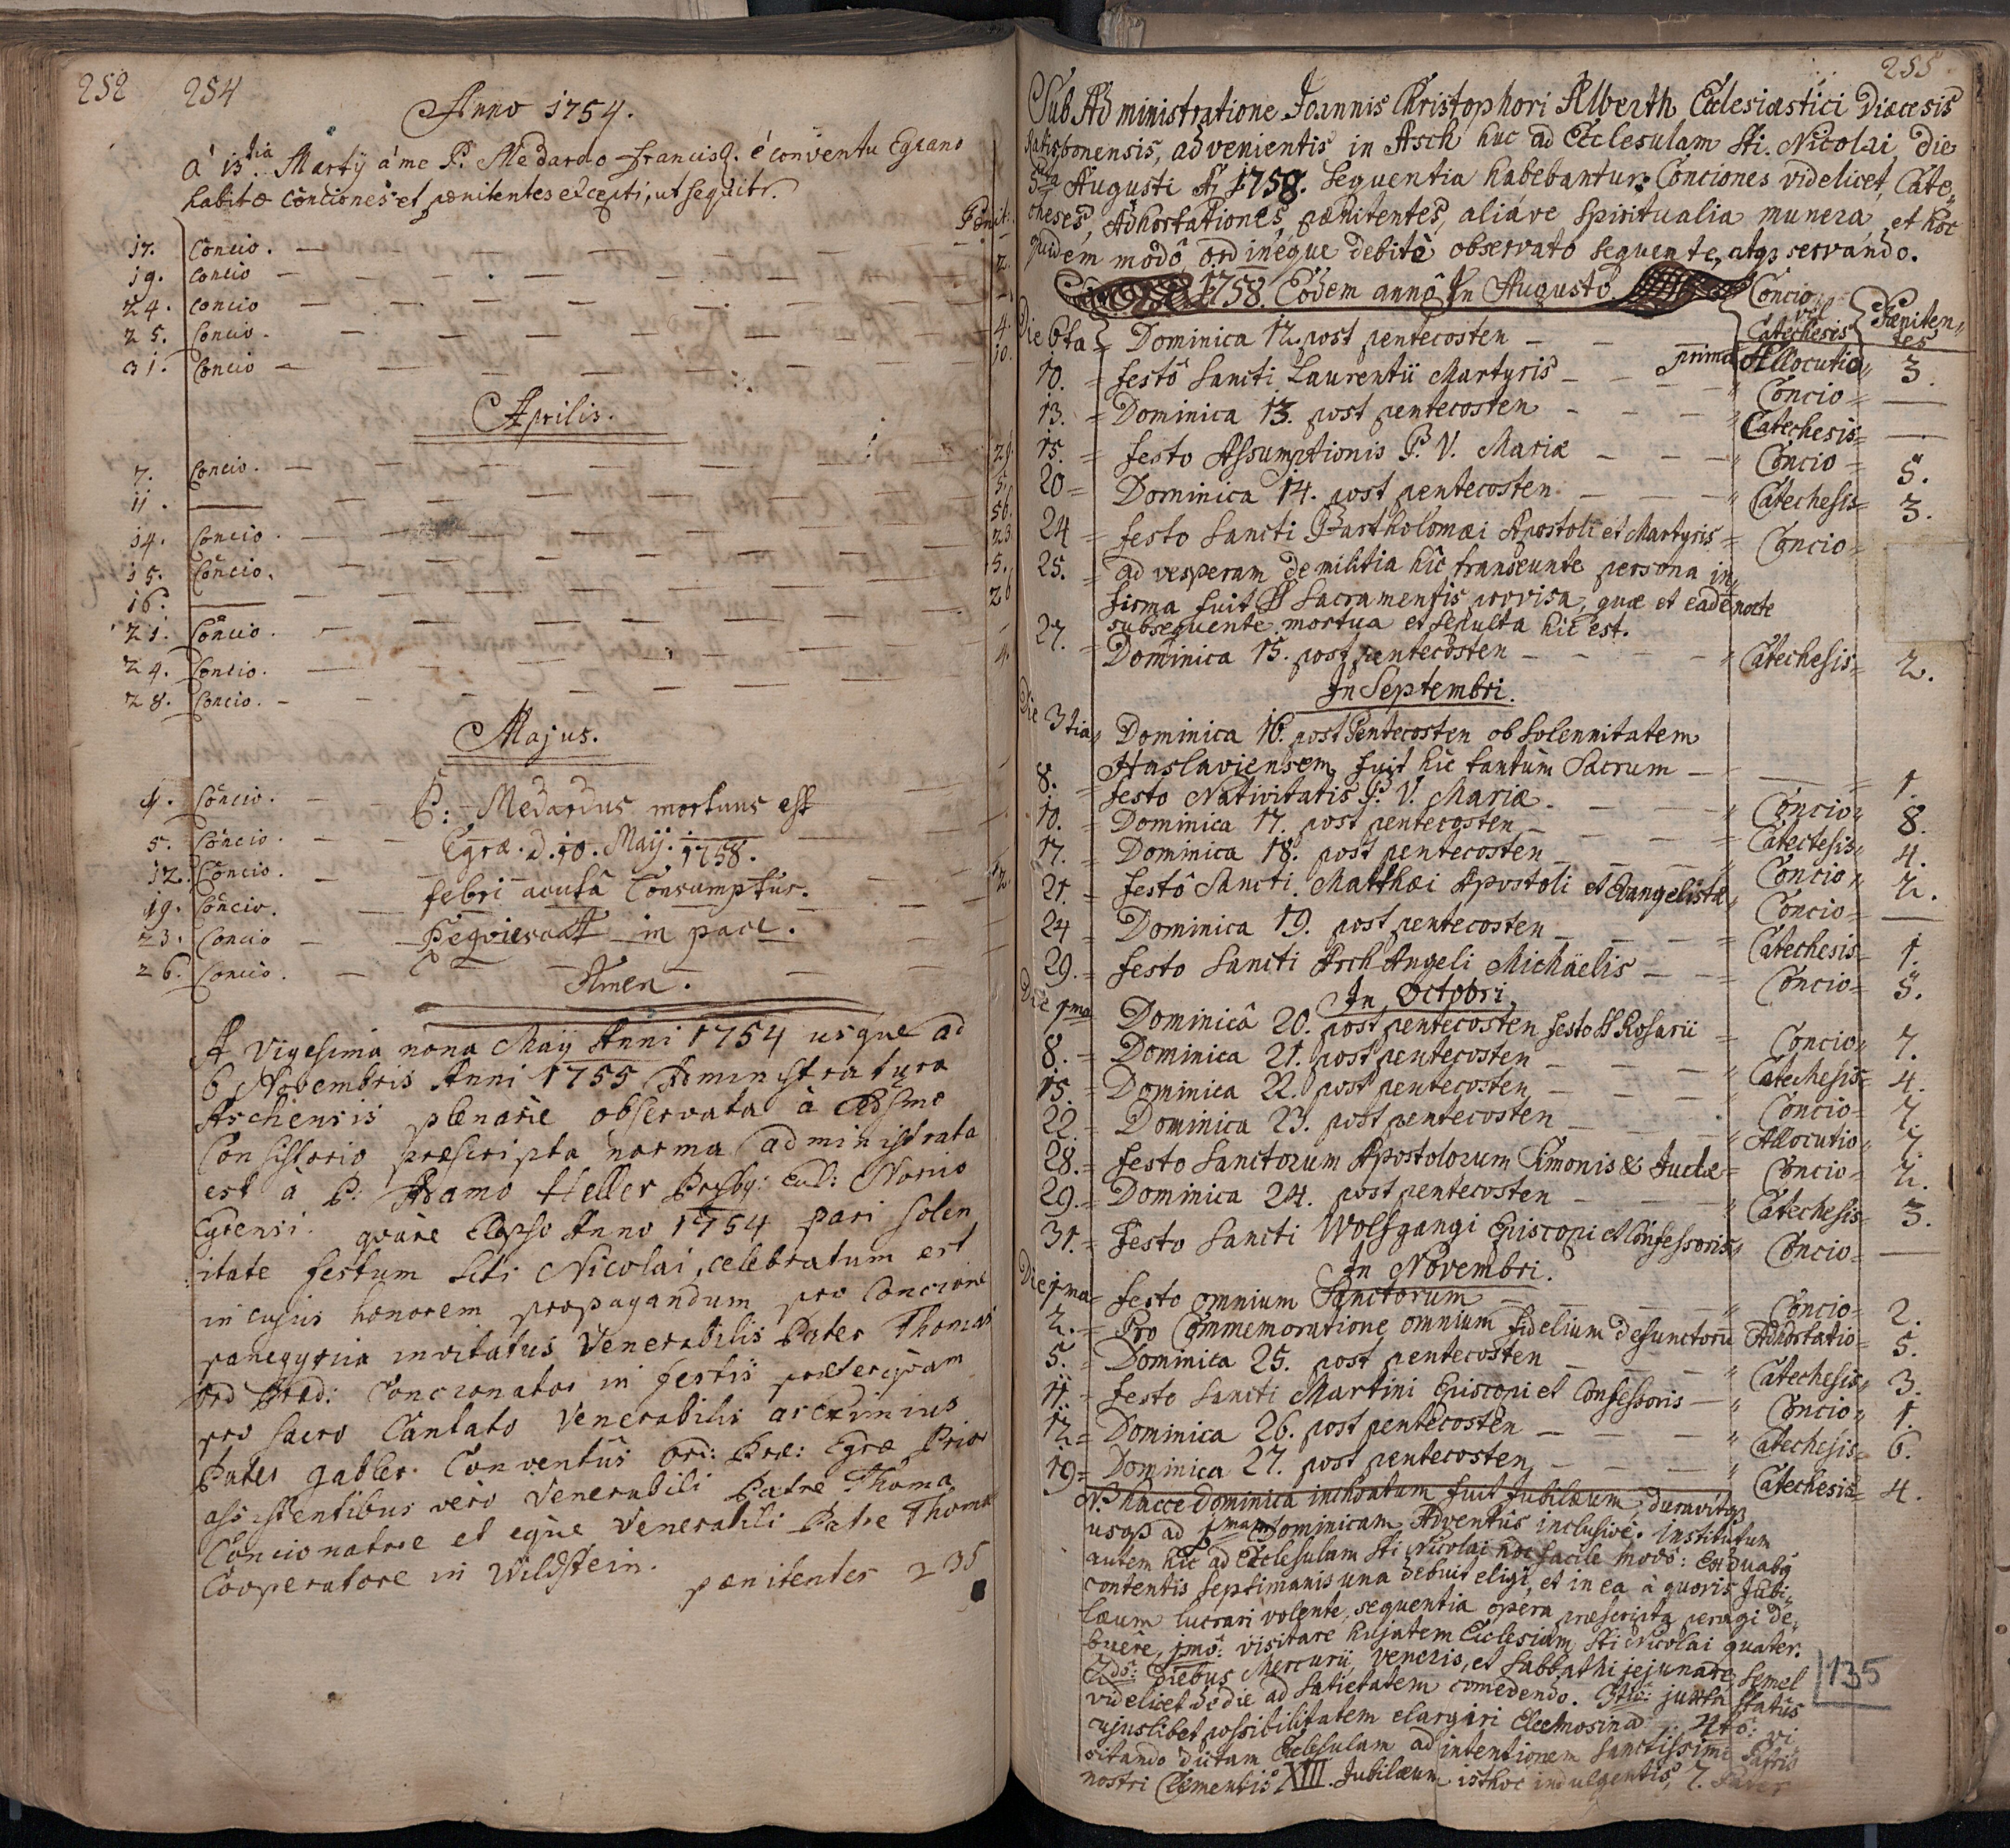 252 254
Anno 1754.
à 13tia Martij à me P. Medardo Francisc. è conventu Egrano
habitæ conciones et pænitentes excepti, ut sequitr.
Pænit.
17. Concio. —
19. Concio — 2.
24. Concio —
25. Concio. — 4.
31. Concio — 10.
Aprilis.
7. Concio. — 29.
11. — 5.
14. Concio. — 56.
15. Concio. — 23.
16. — 5.
21. Concio. — 26
24. Concio. —
28. Concio. — 4.
Majus.
4. Concio.
5. Concio.
12. Concio. — 12.
19. Concio.
23. Concio
26. Concio.
P: Medardus mortuus est
Egræ. d. 10. Maij. 1758.
febri acuta Consumptus.
Reqviescat in pace.
Amen.
A Vigesima nona Maij Anni 1754 usque ad
6 Novembris Anni 1755 Administratura
Aschensis plenarie observata à
Consistorio præscripta norma administrata
est à P: Adamo Heller Presby:
Egrensi. quare Elapso Anno 1754 pari solen
itate festum Scti Nicolai, celebratum est
in cujus honorem propagandum pro Concione
panegyrica invitatus Venerabilis Pater Thomas
Ord Præd: Concionator in festis præterqvam
pro sacro Cantato Venerabilis ac eximius
Pater Gabler Conventûs Ord: Præ: Egræ Prior
assistentibus vero Venerabili Patre Thoma
Concionatore et eque Venerabili Patre Thoma
Cooperatore in Wildstein.
pænitentes 235
255
Sub Administratione Joannis Christophori Alberth Ecclesiastici Diæcesis
Ratisponensis, advenientis in Asch huc ad Ecclesulam Sti. Nicolai, die
5ta Augusti A. 1758. sequentia habebantur: Conciones videlicet, Cate,,
cheses, Adhortationes, pænitentes, aliáve spiritualia munera, et hoc
quidem modô, ordinéque debitè observatô sequente, atq, servando.
1758. Eôdem annô In Augustô
Concio vel Catechesis Pæniten,, tes
Die 6ta Dominica 12. post pentecosten — prima Allocutio 3.
10. = festô Sancti Laurentii Martyris — Concio = —
13. = Dominica 13. post pentecosten — Catechesis = —
15. = festo Assumptionis B. V. Mariæ — Concio = 5.
20 = Dominica 14. post pentecosten — Catechesis = 3.
24 = festo Sancti Bartholomæi Apostoli et Martyris = Concio =
25. = ad vesperam de militia hîc transeunte persona in,,
firma fuit SS Sacramentis provisa, quæ et eadê nocte
subsequente mortua et sepulta hic est.
27. = Dominica 15. post pentecosten — Catechesis = 2.
In Septembri.
Die 3tia Dominica 16. post Pentecosten ob solennitatem
Haslaviensem, fuit hîc tantùm Sacrum — 1.
8. = festo Nativitatis B. V. Mariæ. — Concio 8.
10. = Dominica 17. post pentecosten — Catechesis 4.
17. = Dominica 18. post pentecosten — Concio 2.
21. = festô Sancti Matthæi Apostoli et Evangelistæ, Concio = —
24 = Dominica 19. post pentecosten — Catechesis = 1.
29. = festo Sancti ArchAngeli Michäelis — Concio = 5.
In Octobri.
Die 1ma Dominicâ 20. post pentecosten festo SS Rosarii = Concio 7.
8. = Dominica 21. post pentecosten — Catechesis = 4.
15. = Dominica 22. post pentecosten — Concio = 7.
22. = Dominica 23. post pentecosten — Allocutio 7.
28. = festo Sanctorum Apostolorum Simonis & Judæ = Concio = 2.
29. = Dominica 24. post pentecosten — Catechesis = 3.
31. = festo Sancti Wolfgangi Episcopi et Confessoris, Concio = —
In Novembri.
Die 1ma = festo omnium Sanctorum — Concio = 2.
2. = Pro Commemoratione omnium fidelium defunctorū Adhortatio = 5.
5. = Dominica 25. post pentecosten — Catechesis 3.
11. = festo Sancti Martini Episcopi et Confessoris — Concio 1.
12. = Dominica 26. post pentecosten — Catechesis = 6.
19 = Dominica 27. post pentecosten, — Catechesis = 4.
NB hâcce Dominica inchoatum fuit Jubilæum, duravitq,
usq, ad 1mam Dominicam Adventûs inclusivé. Institutum
autem hîc ad Ecclesulam Sti Nicolai hoc facile modô: Ex duabq
contentis septimanis una debuit eligi, et in ea à quovis Jubi,,
læum lucrari volente, sequentia opera præscripta peragi de,,
buêre, 1mô: visitare hujatem Ecclesiam Sti Nicolai quater.
2dô: Diebus Mercurii, Veneris, et Sabbathi jejunare, semel
videlicet de die ad satietatem comedendo. 3tiô: juxta statûs
cujuslibet possibilitatem elargiri Eleemosinas. 4tô: vi
sitando dictam Ecclesulam ad intentionem Sanctissimi Patris
nostri Clementis XIII. Jubilæum isthoc indulgentis, 7. Pater
135